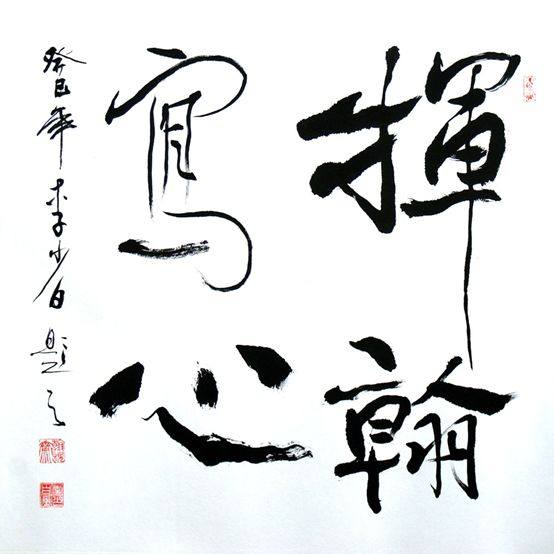 揮翰
寫心
癸巳年李少白題之